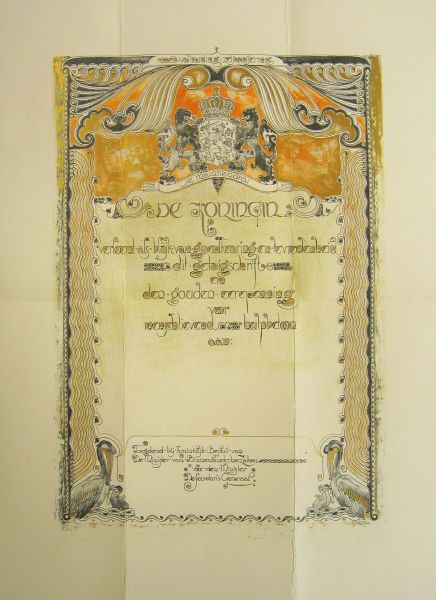 JE MAINTIENDRAI
DE KONINGIN
verleent·als·blijk·van·goedkeuring·en·tevredenheid
dit·getuigschrift
en
den·gouden·eerepenning
voor
menschlievend hulpbetoon
aan:
Toegekend·bij·Koninklijk·Besluit·van
De·Minister·van·Binnenlandsche·Zaken
Voor·den·Minister
De·Secretaris·Generaal